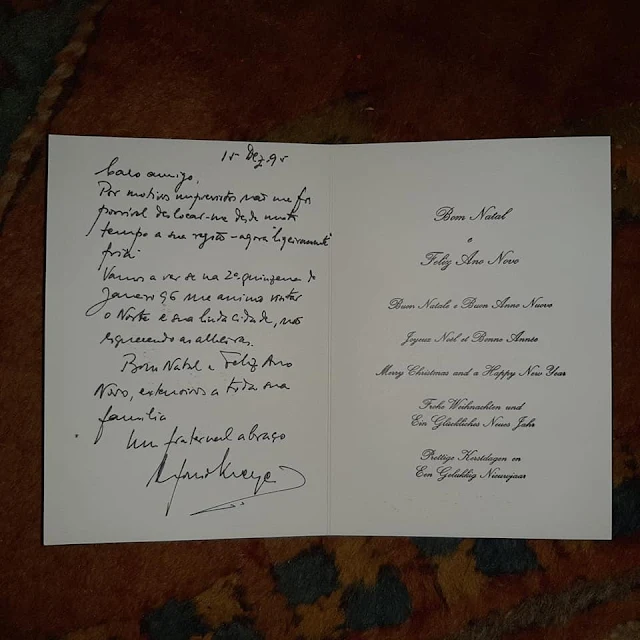 15 Dez 95
Caro amigo,
Por motivos imprevistos não me foi
possível deslocar-me desde muito
tempo a sua região - agora "ligeiramente"
fria.
Vamos a ver se na 2ª quinzena de
Janeiro 96 me animo visitar
o Norte e sua linda cidade, não
esquecendo as alheiras.
Bom Natal e Feliz Ano
Novo, extensivos a toda sua
família
Um fraternal abraço
Bom Natal
e
Feliz Ano Novo
Buon Natale e Buon Anno Nuovo
Joyeux Noël et Bonne Année
Merry Christmas and a Happy New Year
Frohe Weihnachten und
Ein Glückliches Neues Jahr
Prettige Kerstdagen en
Een Gelukkig Nieuwjaar